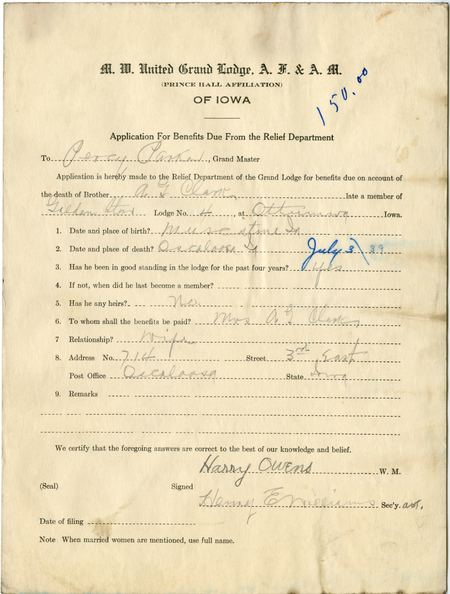 M. W. United Grand Lodge, A. F. & A. M.
(PRINCE HALL AFFILIATION)
OF IOWA
150.00
Application For Benefits Due From the Relief Department
To Percy Parker, Grand Master
Application is hereby made to the Relief Department of the Grand Lodge for benefits due on account of
the death of Brother A G Clark late a member of
Golden Star Lodge No. 4, at Ottumwa Iowa.
1. Date and place of birth? Muscatine Ia
2. Date and place of death? Oscaloosa Ia July 3/39
3. Has he been in good standing in the lodge for the past four years? Yes
4. If not, when did he last become a member?
5. Has he any heirs?
6. To whom shall the benefits be paid? Mrs A G Clark
7 Relationship? Wife
8. Address No. 714 Street 3rd East
Post Office Oscaloosa State Iowa
9. Remarks
We certify that the foregoing answers are correct to the best of our knowledge and belief.
Harry Owens W. M.
(Seal) Signed
Henry E Williams Sec'y. act.
Date of filing
Note When married women are mentioned, use full name.